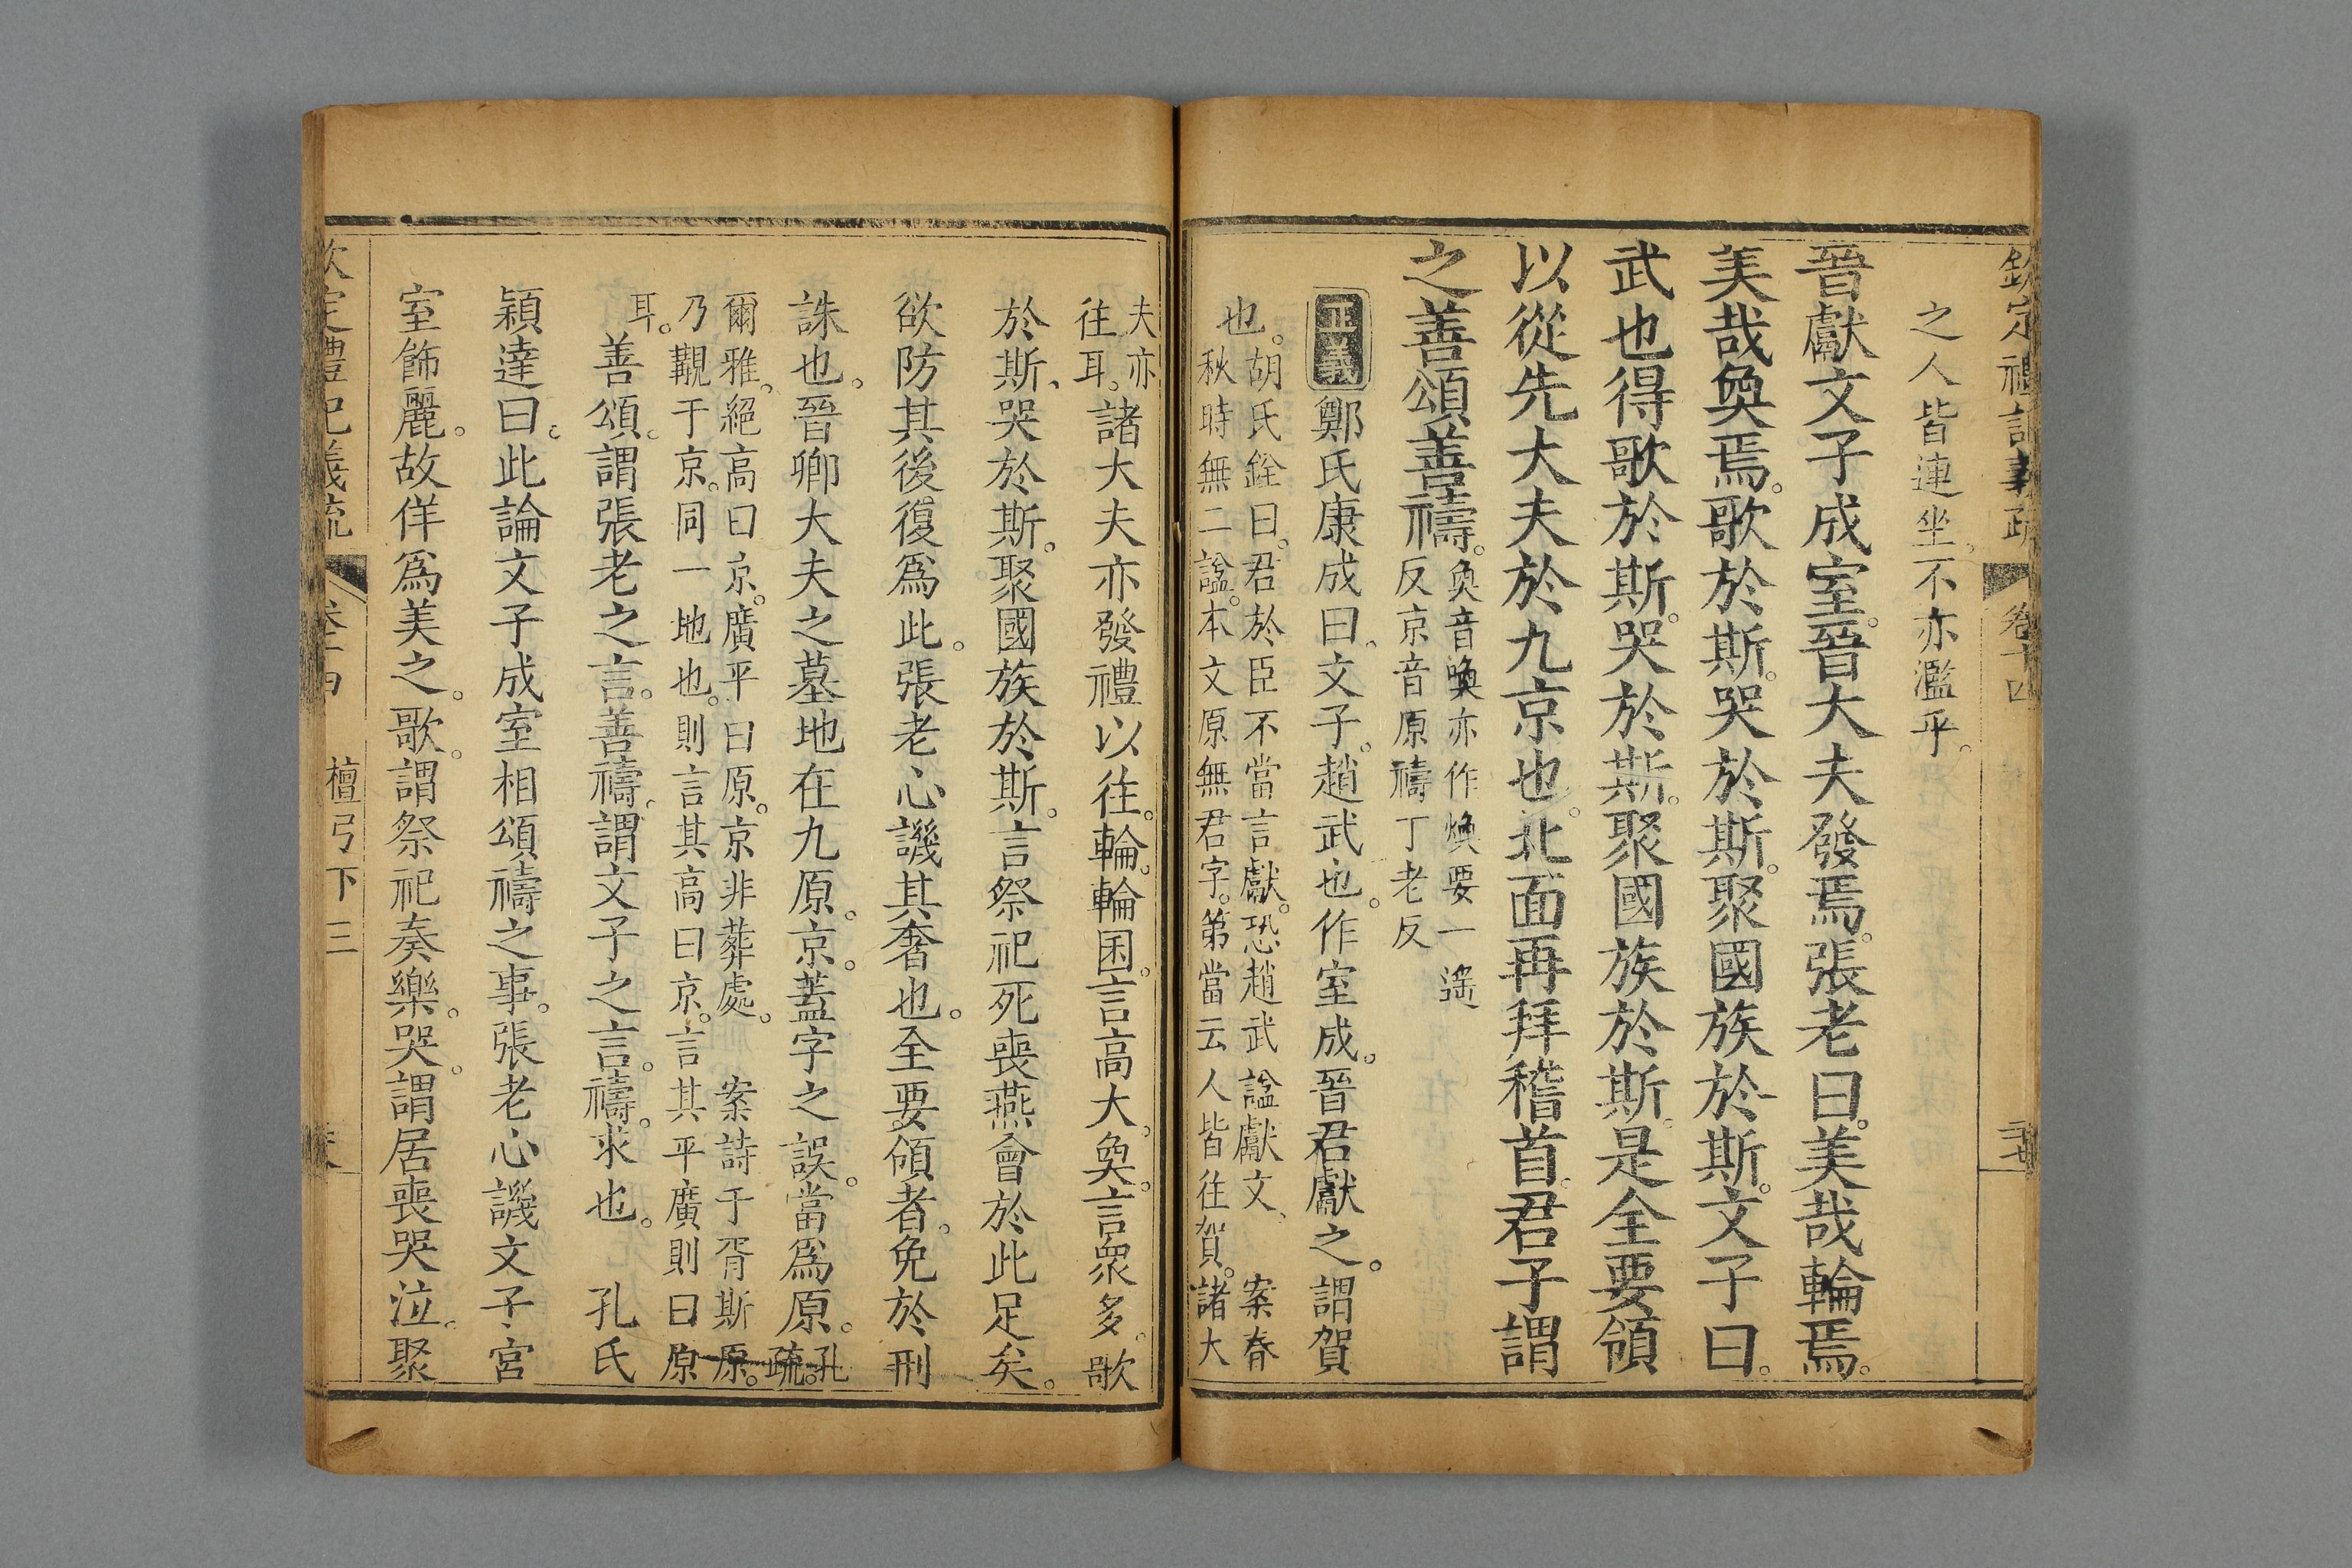 欽定禮記義疏 卷十四
之人皆連坐。不亦濫乎。
晉獻文子成室。晉大夫發焉。張老曰。美哉輪焉。
美哉奐焉。歌於斯。哭於斯。聚國族於斯。文子曰。
武也得歌於斯。哭於斯。聚國族於斯。是全要領
以從先大夫於九京也。北面再拜稽首。君子謂
之善頌善禱。奐音喚亦作煥要一遥
反京音原禱丁老反
正義 鄭氏康成曰。文子。趙武也。作室成。晉君獻之。謂賀
也。胡氏銓曰。君於臣不當言獻。恐趙武諡獻文。 案春
秋時無二諡。本文原無君字。第當云人皆往賀。諸大
夫亦
往耳。諸大夫亦發禮以往。輪。輪囷。言高大。奐。言衆多。歌
於斯、哭於斯。聚國族於斯。言祭祀死喪燕會於此足矣。
欲防其後復爲此。張老心譏其奢也。全要領者。免於刑
誅也。晉卿大夫之墓地在九原。京。蓋字之誤。當爲原。孔
疏。
爾雅。絕高曰京。廣平曰原。京非葬處。 案詩于胥斯原。
乃觀于京。同一地也。則言其高曰京。言其平廣則曰原
耳。善頌。謂張老之言。善禱。謂文子之言。禱。求也。 孔氏
穎達曰。此論文子成室相頌禱之事。張老心譏文子宮
室飾麗。故佯爲美之。歌。謂祭祀奏樂。哭。謂居喪哭泣。聚
欽定禮記義疏 卷十四 檀弓下三